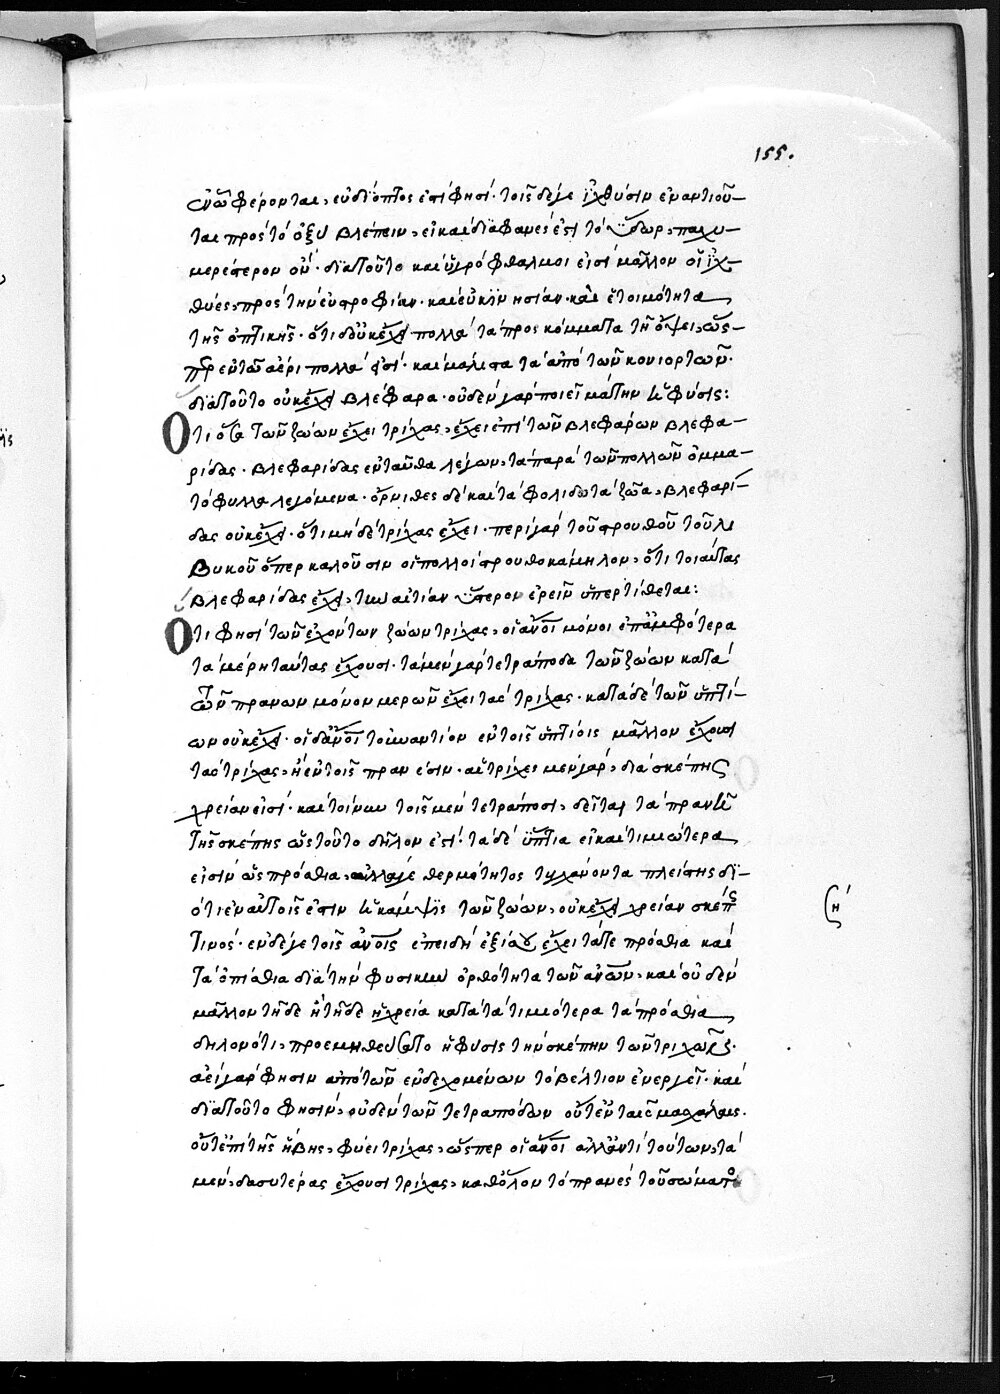 155.
ἐν ᾧ φέρονται, εὐδίοπτος ἐστί φησι· τοῖς δέ γε ἰχθύσιν ἐναντιοῦ-
ται πρὸς τὸ ὀξὺ βλέπειν, εἰ καὶ διαφανές ἐστι τὸ ὕδωρ, παχυ-
μερέστερον ὄν· διατοῦτο καὶ ὑγρόφθαλμοι εἰσὶ μᾶλλον οἱ ἰχ-
θύες, πρὸς τὴν εὐτροφίαν· καὶ εὐκινησίαν· καὶ ἑτοιμότητα
τῆς ὀπτικῆς· ὅτι δοὐκ ἔχει πολλὰ τὰ προσκόμματα τῇ ὄψει, ὥς-
περ ἐν τῷ ἀέρι πολλά ἐστι· καὶ μάλιστα τὰ ἀπὸ τῶν κονιορτῶν·
διατοῦτο οὐκ ἔχει βλέφαρα· οὐδὲν γὰρ ποιεῖ μάτην ἡ φύσις:
Ὅτι ὅσα τῶν ζώων ἔχει τρίχας, ἔχει ἐπὶ τῶν βλεφάρων βλεφα-
ρίδας· βλεφαρίδας ἐνταῦθα λέγων, τὰ παρὰ τῶν πολλῶν ὀμμα-
τόφυλλα λεγόμενα· ὄρνιθες δὲ καὶ τὰ φολιδωτὰ ζῶα, βλεφαρί-
δας οὐκ ἔχει· ὅτι μηδὲ τρίχας ἔχει· περὶ γὰρ τοῦ στρουθοῦ τοῦ λι
βυκοῦ ὅπερ καλοῦσιν οἱ πολλοὶ στρουθοκάμηλον, ὅτι τοιαύτας
βλεφαρίδας ἔχει, τὴν αἰτίαν ὕστερον ἐρεῖν ὑπερτίθεται:
Ὅτι φησὶ τῶν ἐχόντων ζώων τρίχας, οἱ ἄνοι μόνοι ἐπ' ἀμφότερα
τὰ μέρη ταύτας ἔχουσι· τὰ μὲν γὰρ τετράποδα τῶν ζώων κατὰ
τῶν πρανῶν μόνον μερῶν ἔχει τὰς τρίχας· κατὰ δὲ τῶν ὑπτί-
ων οὐκ ἔχει· οἱ δ' ἄνοι τοὐναντίον ἐν τοῖς ὑπτίοις μᾶλλον ἔχουσι
τὰς τρίχας, ἢ ἐν τοῖς πρανέσιν· αἱ τρίχες μὲν γὰρ, διὰ σκέπης
χρείαν εἰσί· καὶ τοίνυν τοῖς μὲν τετράποσι, δεῖται τὰ πρανῆ
τῆς σκέπης ὡς τοῦτο δῆλον ἐστί· τὰ δὲ ὕπτια εἰ καὶ τιμιώτερα
εἰσὶν ὡς πρόσθια, ἀλλάγε θερμότητος τυγχάνοντα πλείστης δι-
ότι ἐν αὐτοῖς ἐστιν ἡ κάμψις τῶν ζώων, οὐκ ἔχει χρείαν σκέπης
τινός· ἐν δέ γε τοῖς ἀνοις ἐπειδὴ ἐξίσου ἔχει τάτε πρόσθια καὶ
τὰ ὀπίσθια διὰ τὴν φυσικὴν ὀρθότητα τῶν ἀνων, καὶ οὐδὲν
μᾶλλον τῇδε ἢ τῇδε ἡ χρεία κατὰ τὰ τιμιώτερα τὰ πρόσθια
δηλονότι, προεμηθεύσατο ἡ φύσις τὴν σκέπην τῶν τριχῶν·
ἀεὶ γὰρ φησὶν ἀπὸ τῶν ἐνδεχομένων τὸ βέλτιον ἐνεργεῖ· καὶ
διατοῦτο φησὶν, οὐδὲν τῶν τετραπόδων οὔτ' ἐν ταῖς μασχάλαις·
οὔτ' ἐπὶ τῆς ἥβης, φύει τρίχας, ὥσπερ οἱ ἄνοι ἀλλ' ἀντὶ τούτων, τὰ
μὲν, δασυτέρας ἔχουσι τρίχας, καθόλον τὸ πρανὲς τοῦ σώματος